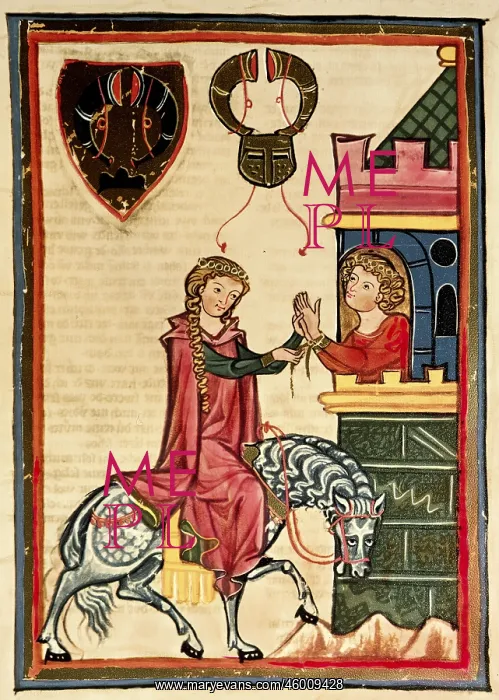 ME
PL
ME
PL
www.maryevans.com/46009428